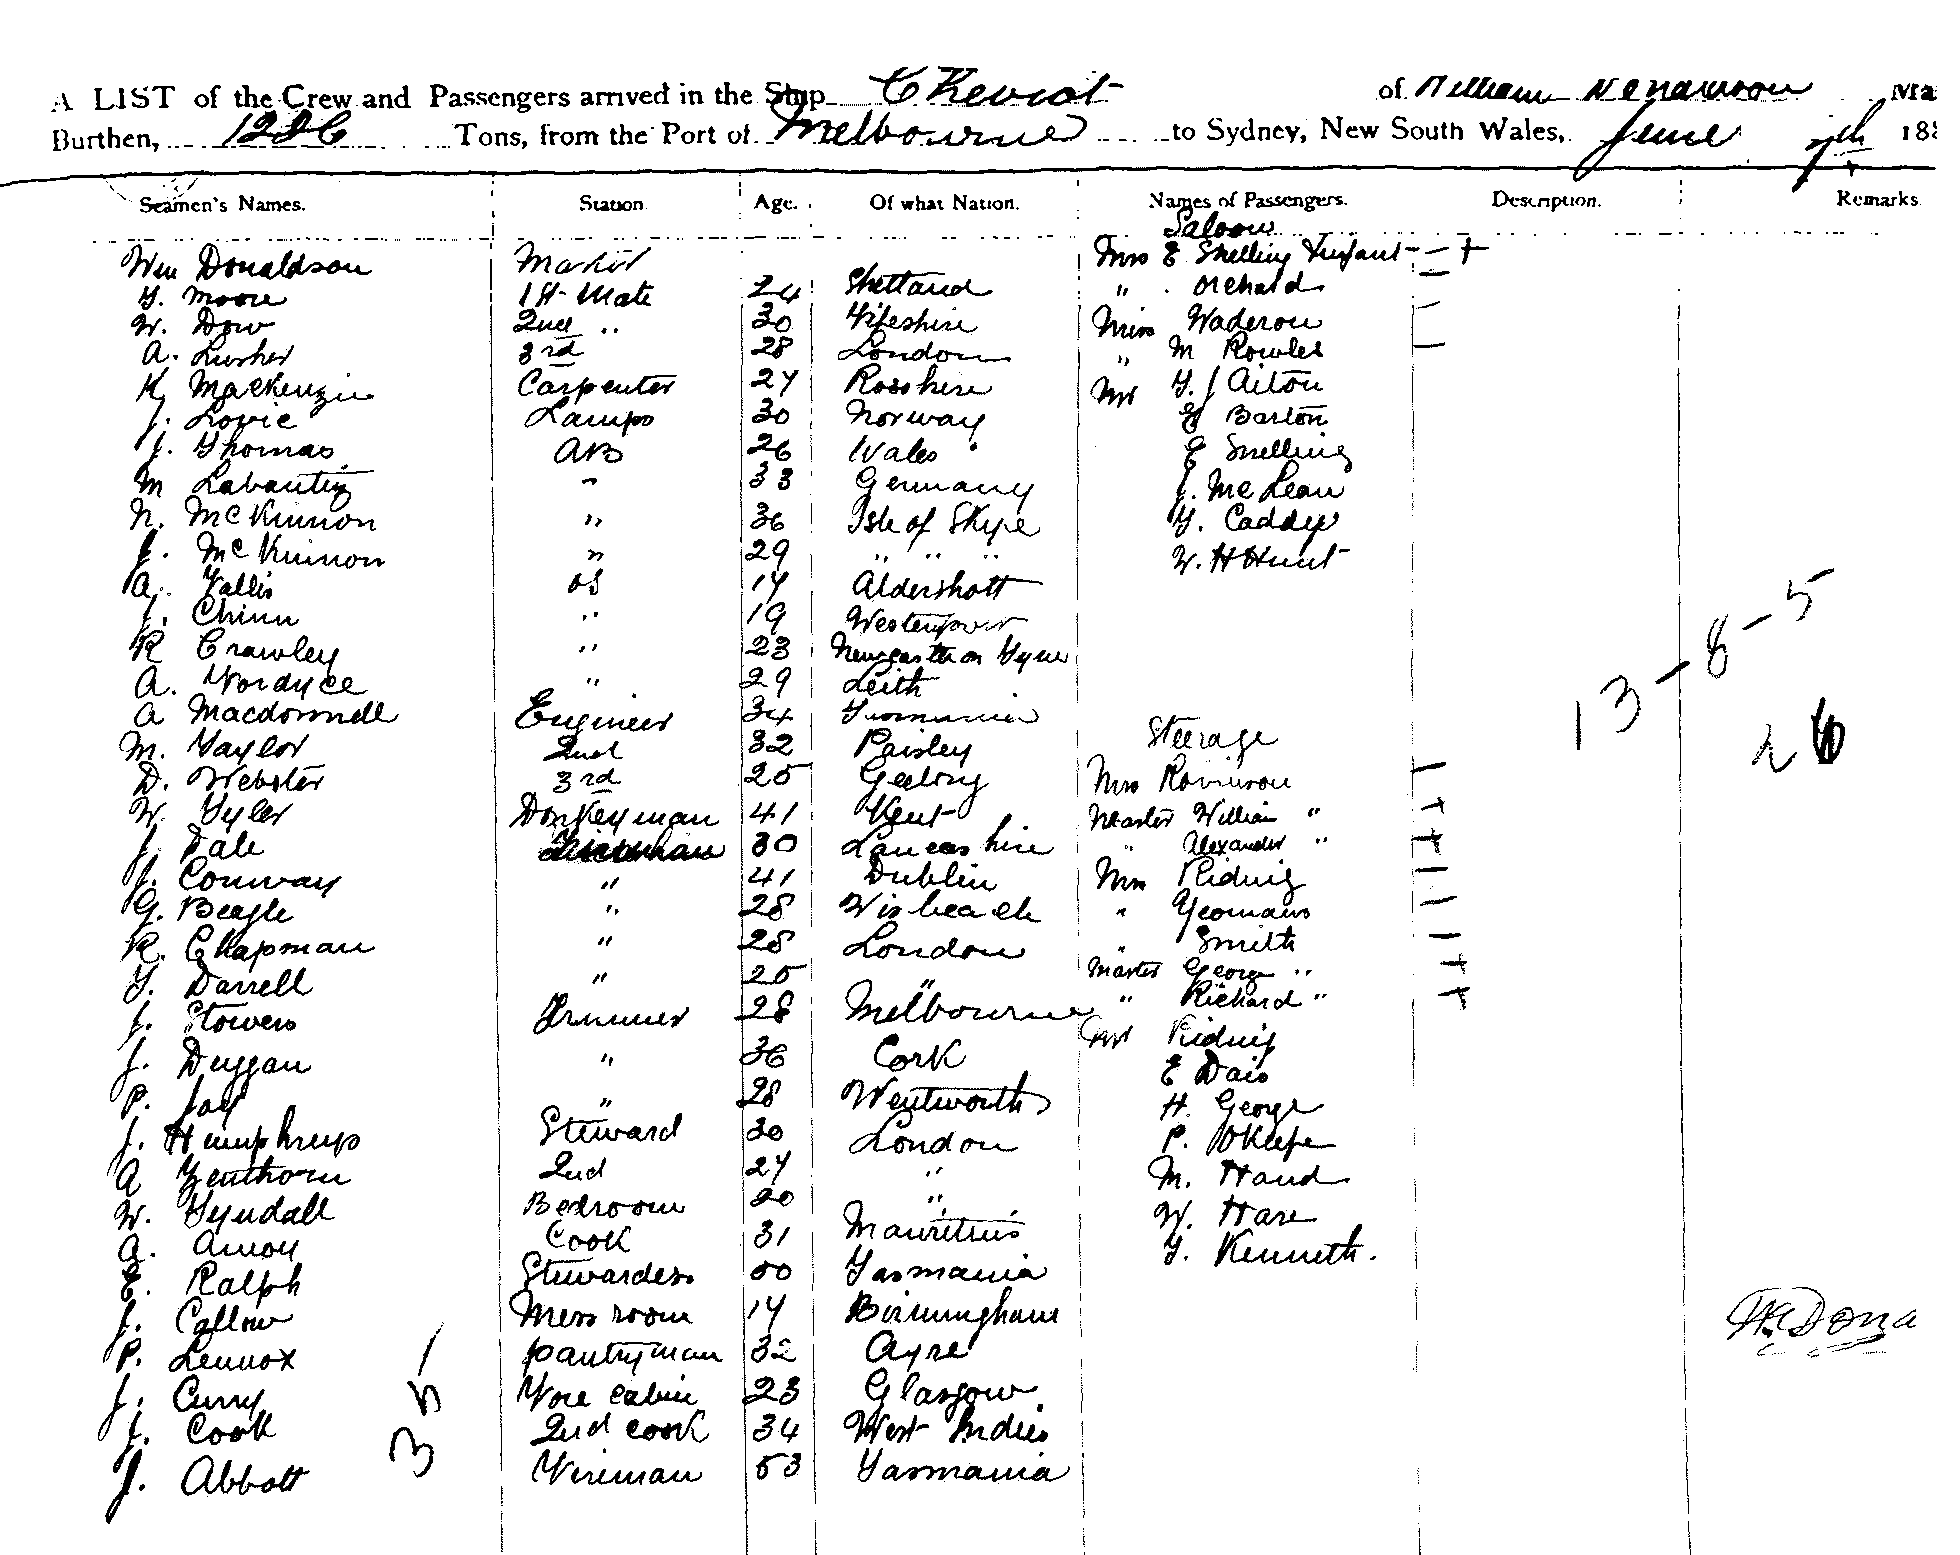 A LIST of the Crew and Passengers arrived in the Ship Cheviot of William Ma
Burthen, 1226 Tons, from the Port of Melbourne to Sydney, New South Wales, June 7th 188
Seamen's Names. Station Age. Of what Nation. Names of Passengers. Description. Remarks
Saloon
Wm Donaldson Master Mrs E Snelling & Infant
Y. Moore 1st Mate 24 Shetland " Orchard
W. Dow 2nd " 30 Fifeshire Miss Waderon
A. Lusher 3rd 28 London " M Rowles
K Mackenzie Carpenter 27 Rosshire Mr Y. J Aiton
J. Lovie Lamps 30 Norway E Barton
J. Thomas AB 26 Wales E Snelling
M " 33 Germany J. McLean
N. McKinnon " 36 Isle of Skye Y. Caddy
J. McKinnon " 29 " " " W. H Hunt
A. Fallis OS 17 Aldershott
J. Chinn " 19
R Crawley " 23 Newcastle on Tyne
A. Fordyce " 29 Leith
A Macdonnell Engineer 34
M. Taylor 2nd 32 Paisley Steerage
D. Webster 3rd 25 Geelong Mrs Robinson
W. Tyler Donkeyman 41 Kent Master William "
J. Dale 30 Lancashire " Alexander "
J. Conway " 41 Dublin Mrs Riding
G. Beagle " 28 Wisbeach " Yeomans
R. Chapman " 28 London " Smith
Y. Darrell " 25 " Master George "
J. Stowers Trimmer 28 Melbourne " Richard "
J. Duggan " 36 Cork Mr Riding
P. Jay " 28 Wentworth E Dais
J. Humphreys Steward 30 London H. George
A Zenthorn 2nd 27 " P. OKeefe
W. Tyndall Bedroom 20 " M. Hand
A. Amoy Cook 31 Mauritius W. Hare
E. Ralph Stewardess 50 Tasmania Y. Kenneth.
J. Callow Mess room 17 Birmingham
P. Lennox Pantryman 32 Ayre
J. Curry Fore cabin 23 Glasgow
J. Cook 2nd cook 34 West Indies
J. Abbott Fireman 53 Tasmania
35
13 - 8 - 5
26
Wm Dona